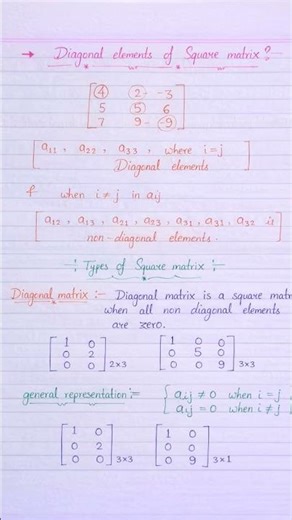 → Diagonal elements of Square matrix?
4 2 -3
5 5 6
7 9 -9
a11, a22, a33, where i=j
Diagonal elements
f when i≠j in aij
a12, a13, a21, a23, a31, a31, a32 is
non-diagonal elements.
Types of Square matrix :-
Diagonal matrix :- Diagonal matrix is a square mat
when all non diagonal elements
are zero.
1 0
0 2
0 0 2×3
1 0 0
0 5 0
0 0 9 3×3
general representation:- { aij ≠ 0 when i=j
aij = 0 when i≠j
1 0
0 2
0 0 3×3
1 0
0 0
0 9 3×1